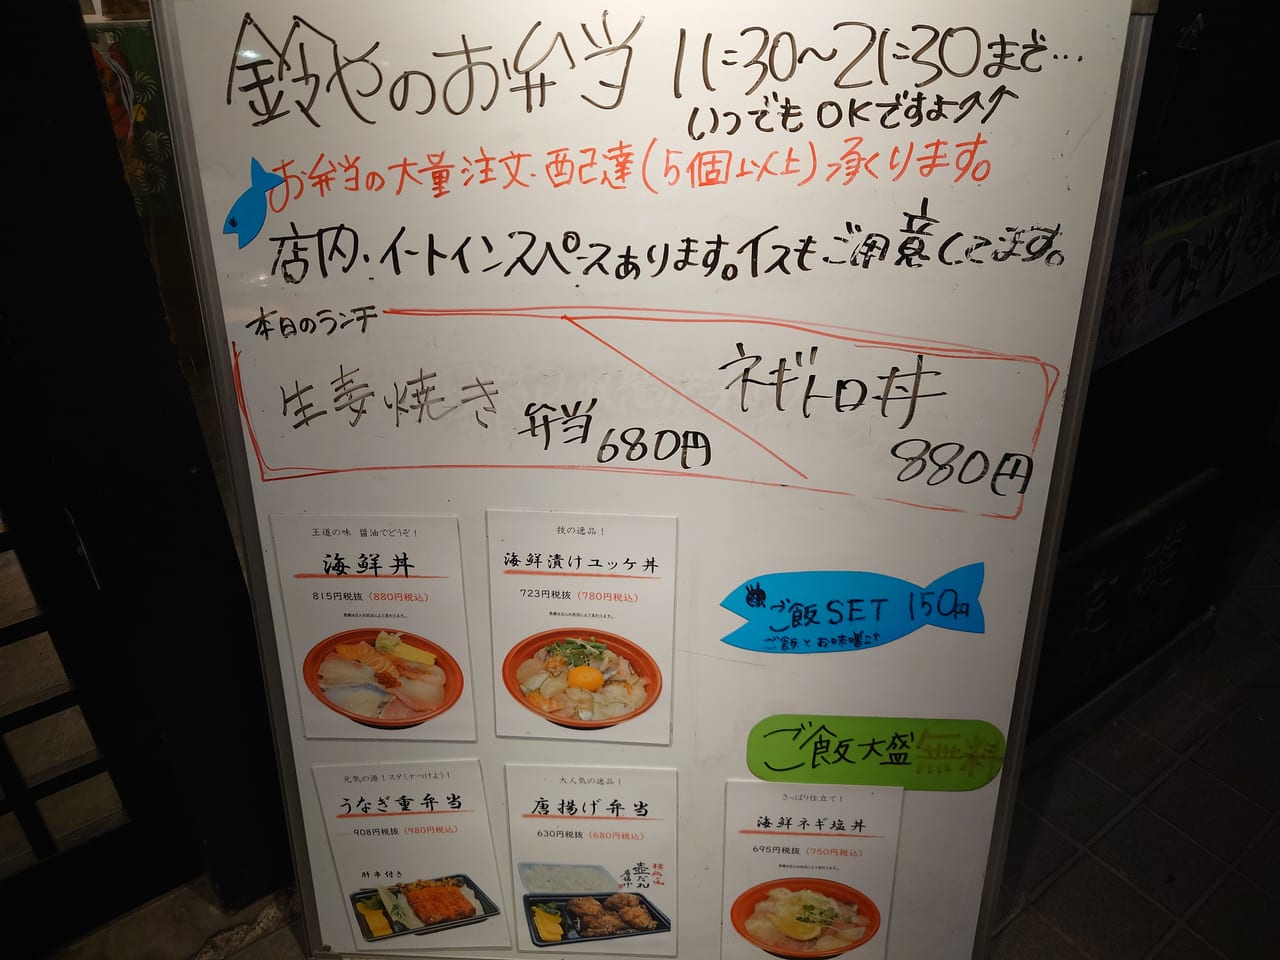 鈴やのお弁当 11:30〜21:30まで…
いつでもOKですよ↗↗
お弁当の大量注文・配達(5個以上)承くります。
店内・イートインスペースあります。イスもご用意してます。
本日のランチ
生姜焼き弁当 680円
ネギトロ丼 880円
王道の味 醤油でどうぞ!
海鮮丼
815円税抜(880円税込)
技の逸品!
海鮮漬けユッケ丼
723円税抜(780円税込)
ご飯SET 150円
ご飯とお味噌汁
ご飯大盛無料
元気の源!スタミナつけよう!
うなぎ重弁当
908円税抜(980円税込)
肝串付き
大人気の逸品!
唐揚げ弁当
630円税抜(680円税込)
壺だれ
唐揚げ
さっぱり仕立て!
海鮮ネギ塩丼
695円税抜(750円税込)